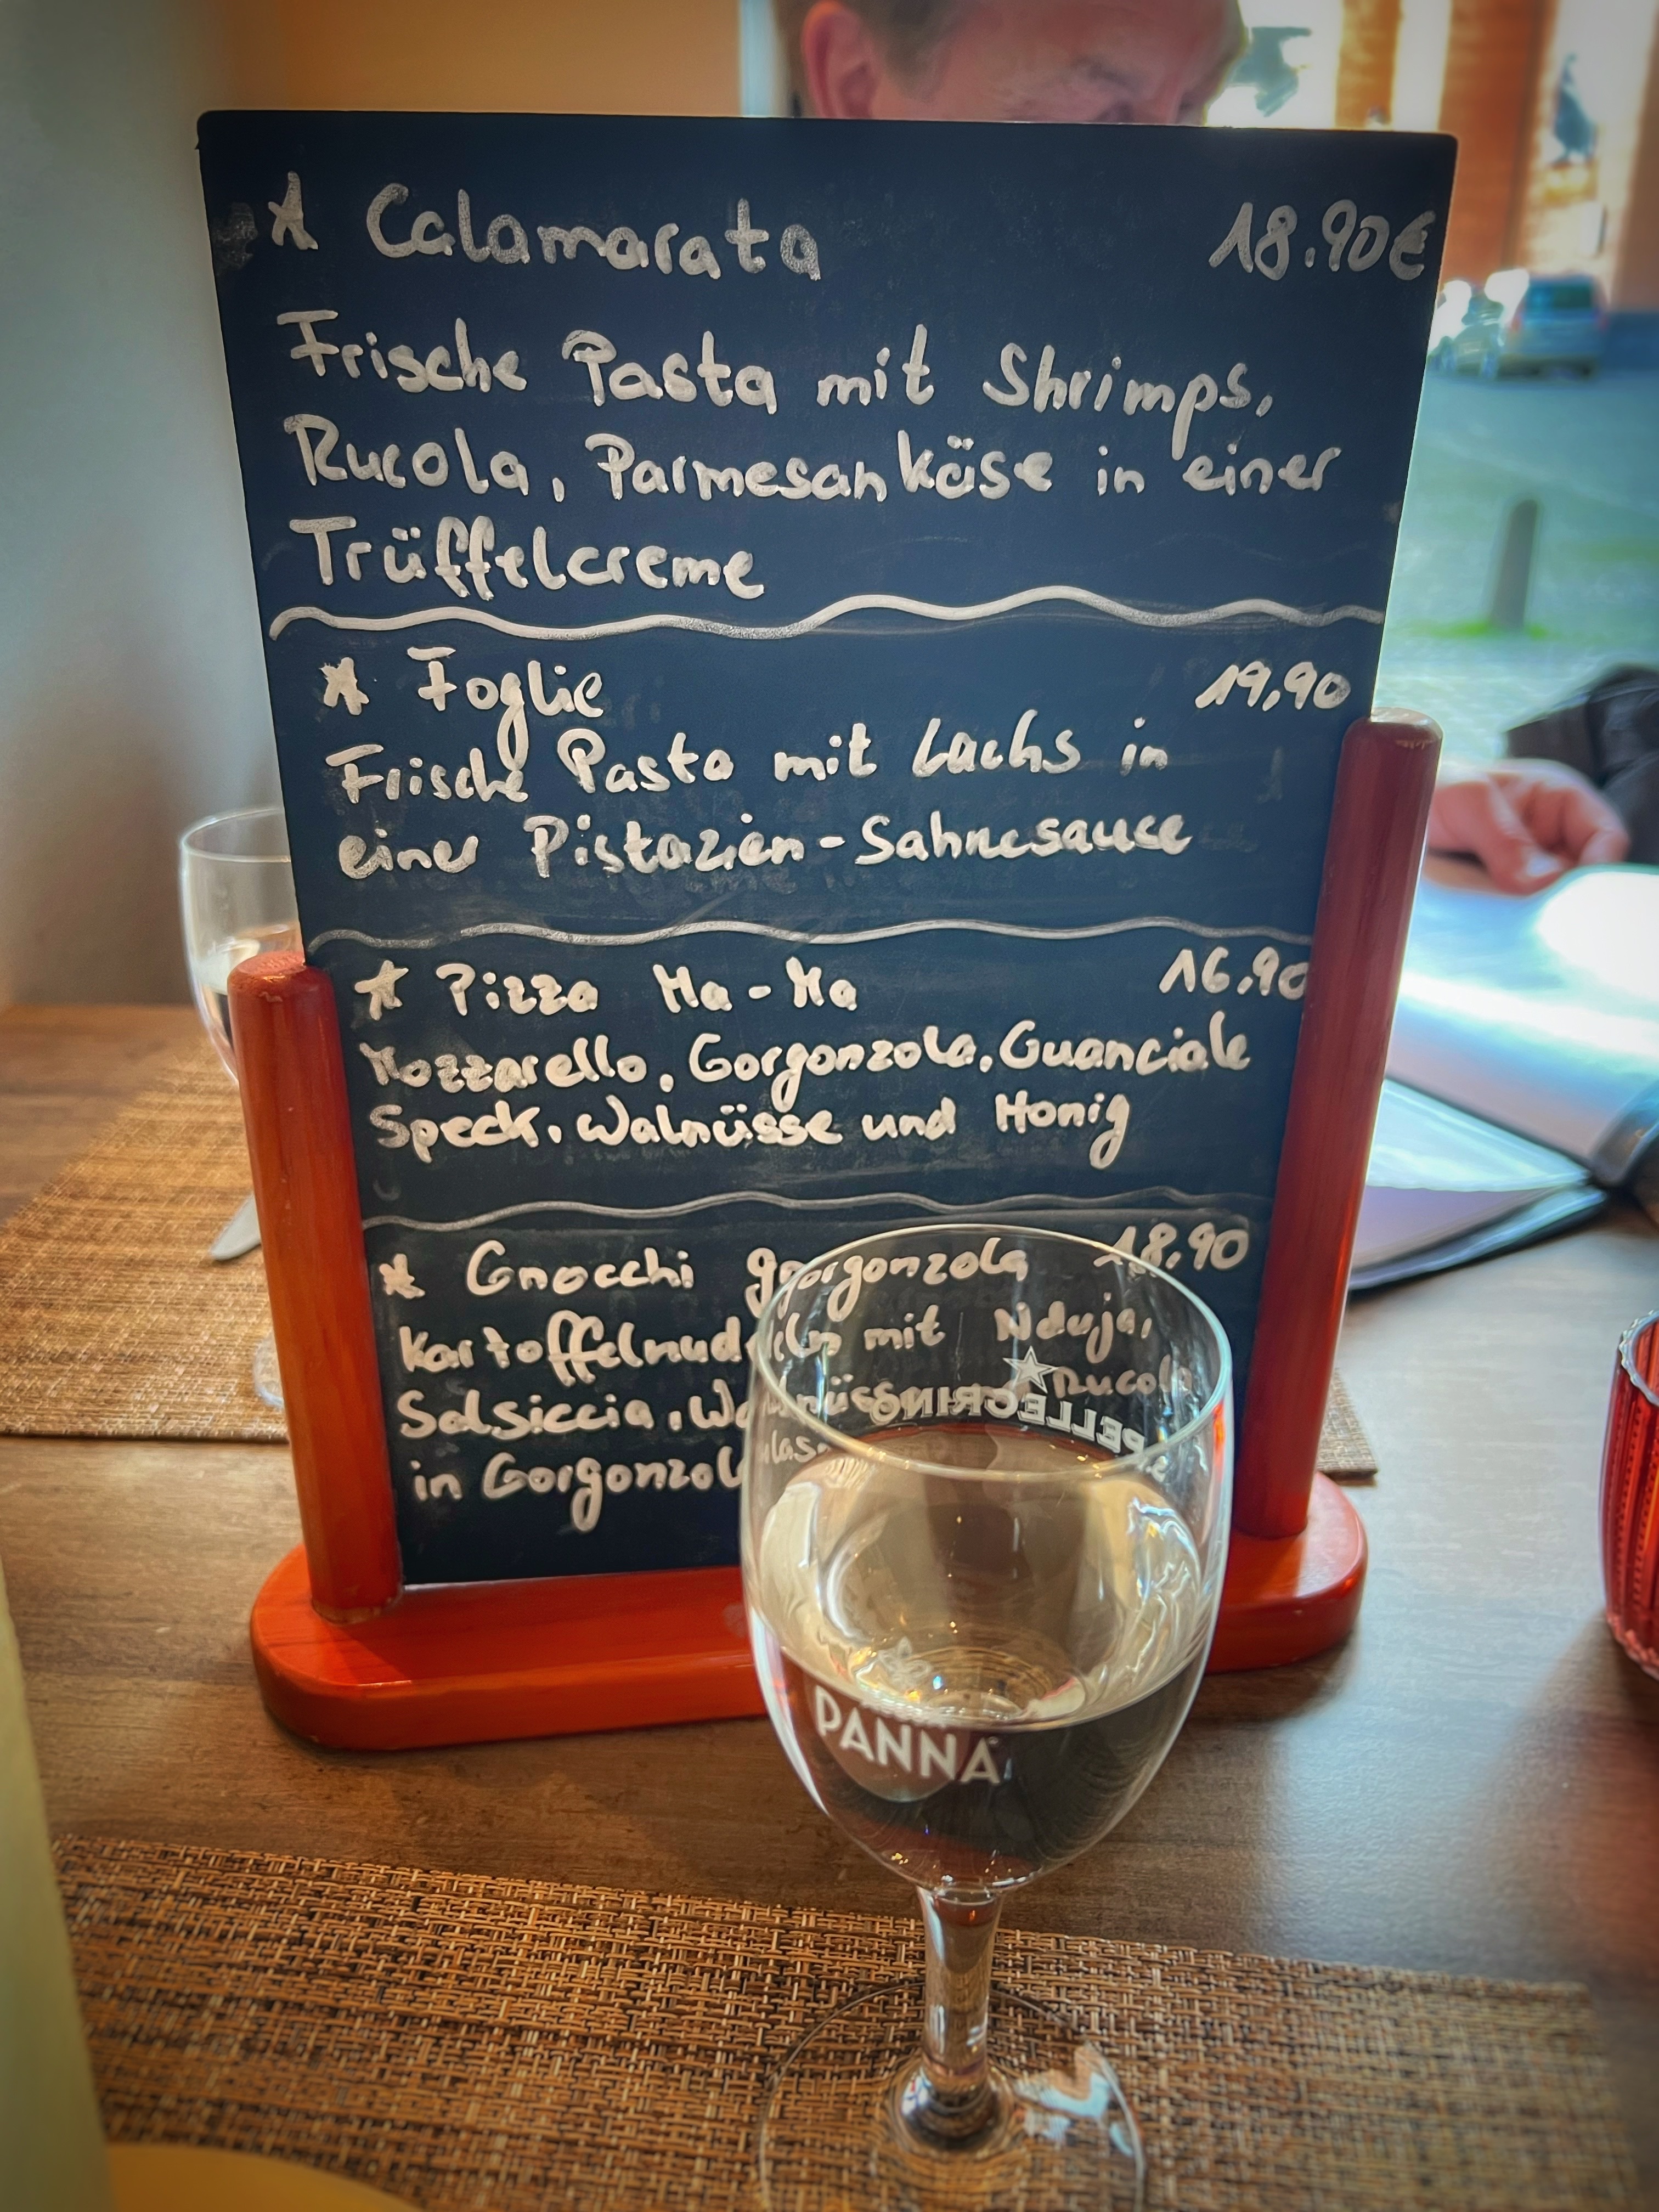 * Calamarata 18.90€
Frische Pasta mit Shrimps,
Rucola, Parmesankäse in einer
Trüffelcreme
* Foglie 19,90
Frische Pasta mit Lachs in
einer Pistazien-Sahnesauce
* Pizza Ma-Ma 16.90
Mozzarella, Gorgonzola, Guanciale
Speck, Walnüsse und Honig
* Gnocchi gorgonzola 18,90
Kartoffelnudeln mit Nduja,
Salsiccia, Walnüsse, Rucola
in Gorgonzola
PELLEGRINO
PANNA